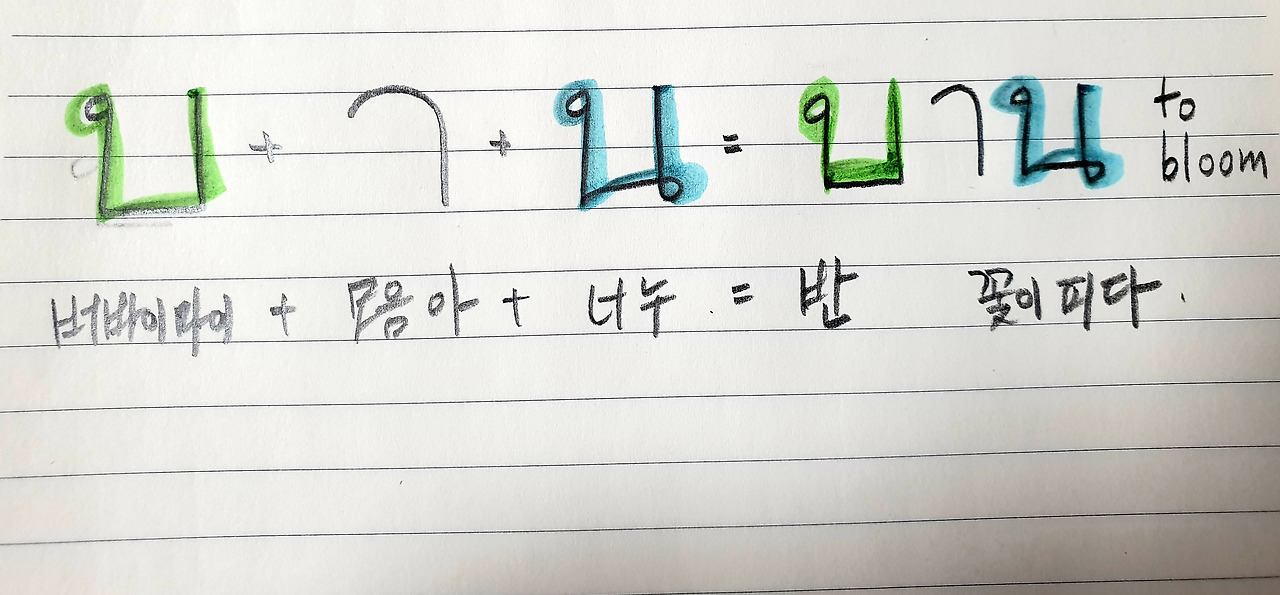 บ + า + น = บาน to bloom
버바이마이 + 모음 아 + 너누 = 반 꽃이 피다.